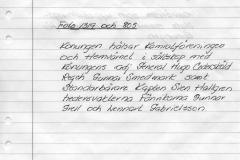 Foto 1319 och 805
Konungen hälsar Kamratföreningen
och Hemvärnet i sällskap med
Konungens adj General Hugo Cederschiöld
Regch Gunnar Smedmark samt
Standarbärare Kapten Sven Hallgren
hedersvakterna Fanrikarna Gunnar
Grell och Lennart Gabrielsson.